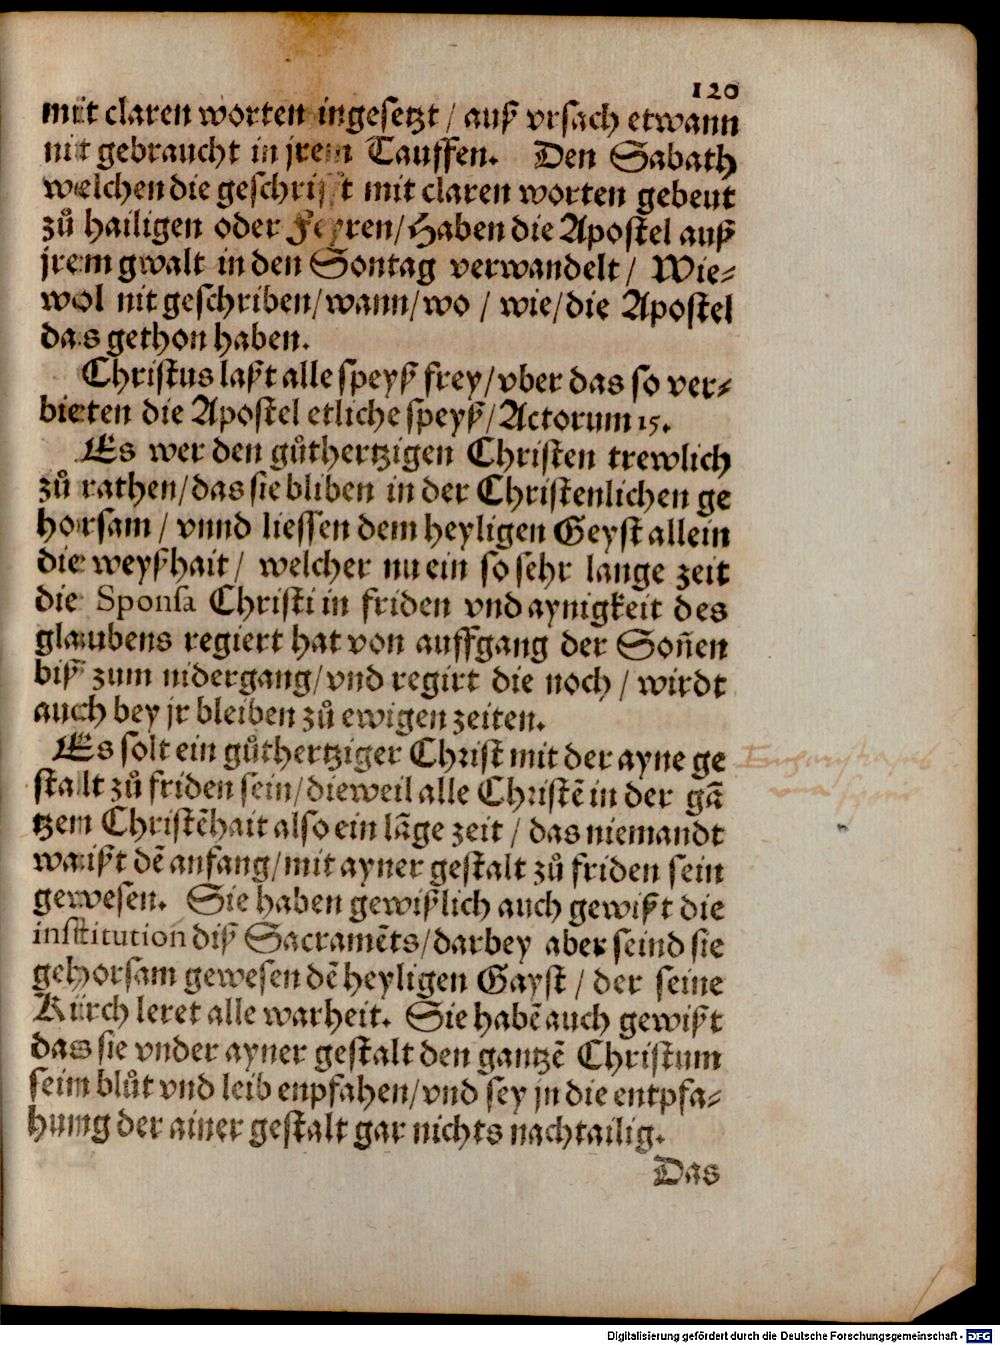 120
mit claren worten ingesetzt / auß vrsach etwann
nit gebraucht in jrem Tauffen. Den Sabath
welchen die geschrifft mit claren worten gebeut
zů hailigen oder Feyren/Haben die Apostel auß
jrem gwalt in den Sontag verwandelt / Wie⸗
wol nit geschriben/wann/wo / wie/die Apostel
das gethon haben.
Christus laßt alle speyß frey/vber das so ver⸗
bieten die Apostel etliche speyß/Actorum 15.
Es wer den gůthertzigen Christen trewlich
zů rathen/das sie bliben in der Christenlichen ge
horsam / vnnd liessen dem heyligen Geyst allein
die weyßhait / welcher nu ein so sehr lange zeit
die Sponsa Christi in friden vnd aynigkeit des
glaubens regiert hat von auffgang der Soñen
biß zum nidergang/vnd regirt die noch / wirdt
auch bey jr bleiben zů ewigen zeiten.
Es solt ein gůthertziger Christ mit der ayne ge
stalt zů friden sein/dieweil alle Christẽ in der gã
tzem Christẽhait also ein lãge zeit / das niemandt
waißt dẽ anfang/mit ayner gestalt zů friden sein
gewesen. Sie haben gewißlich auch gewißt die
institution diß Sacramẽts/darbey aber seind sie
gehorsam gewesen dẽ heyligen Gayst / der seine
Kirch leret alle warheit. Sie habẽ auch gewißt
das sie vnder ayner gestalt den gantzẽ Christum
sein blůt vnd leib enpfahen/vnd sey jn die entpfa⸗
hung der ainer gestalt gar nichts nachtailig.
Das
Digitalisierung gefördert durch die Deutsche Forschungsgemeinschaft - DFG